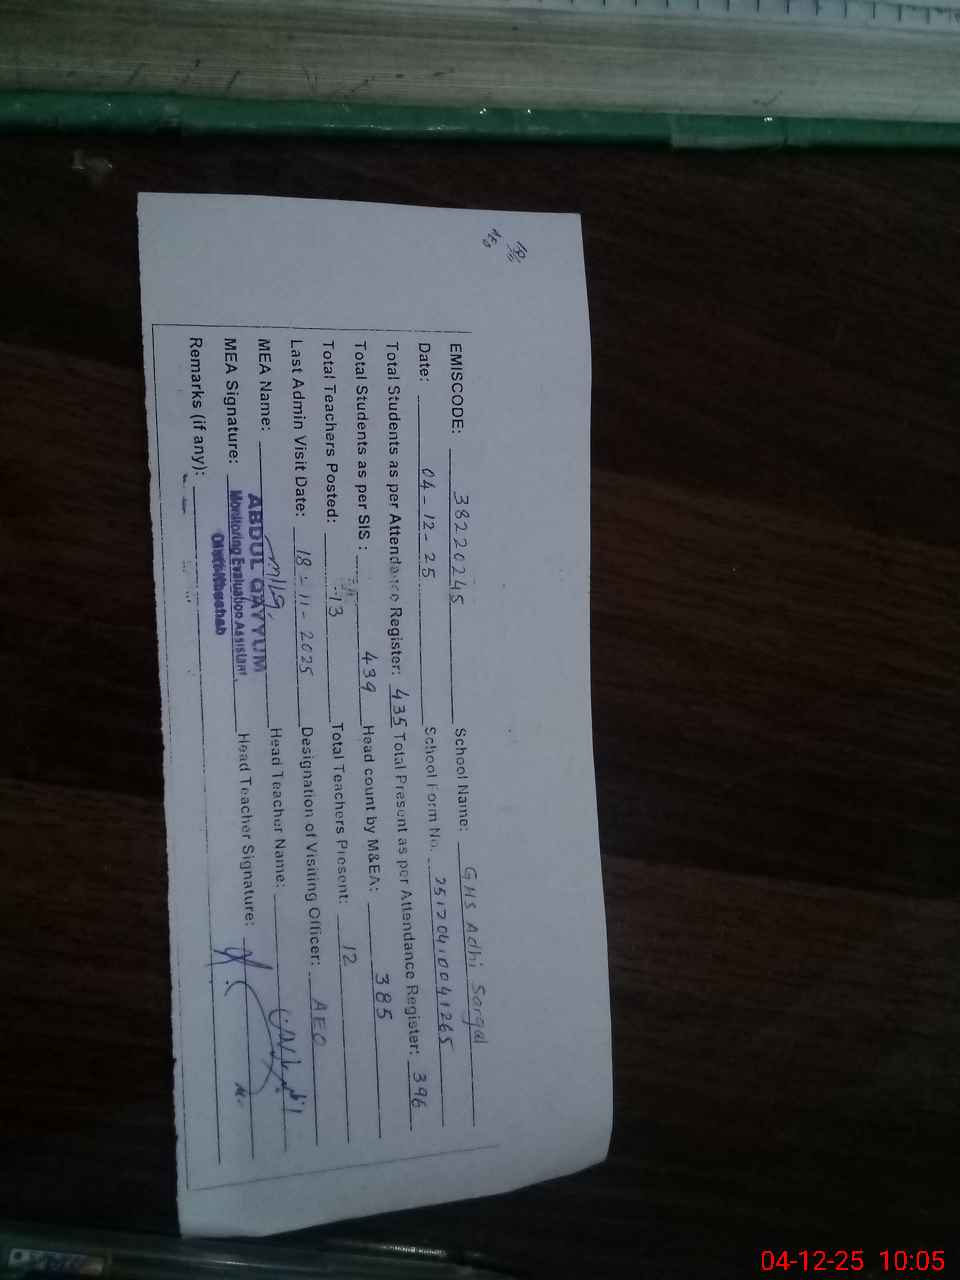 EMISCODE: 38220245 School Name: GHS Adhi Sargal
Date: 04-12-25 School Form No. 25120410041265
Total Students as per Attendance Register: 435 Total Present as per Attendance Register: 396
Total Students as per SIS : 439 Head count by M&EA: 385
Total Teachers Posted: 13 Total Teachers Present: 12
Last Admin Visit Date: 18-11-2025 Designation of Visiting Officer: AEO
MEA Name: ABDUL QAYYUM Head Teacher Name:
MEA Signature: Monitoring Evaluation Assistant Head Teacher Signature:
Remarks (if any):
04-12-25 10:05